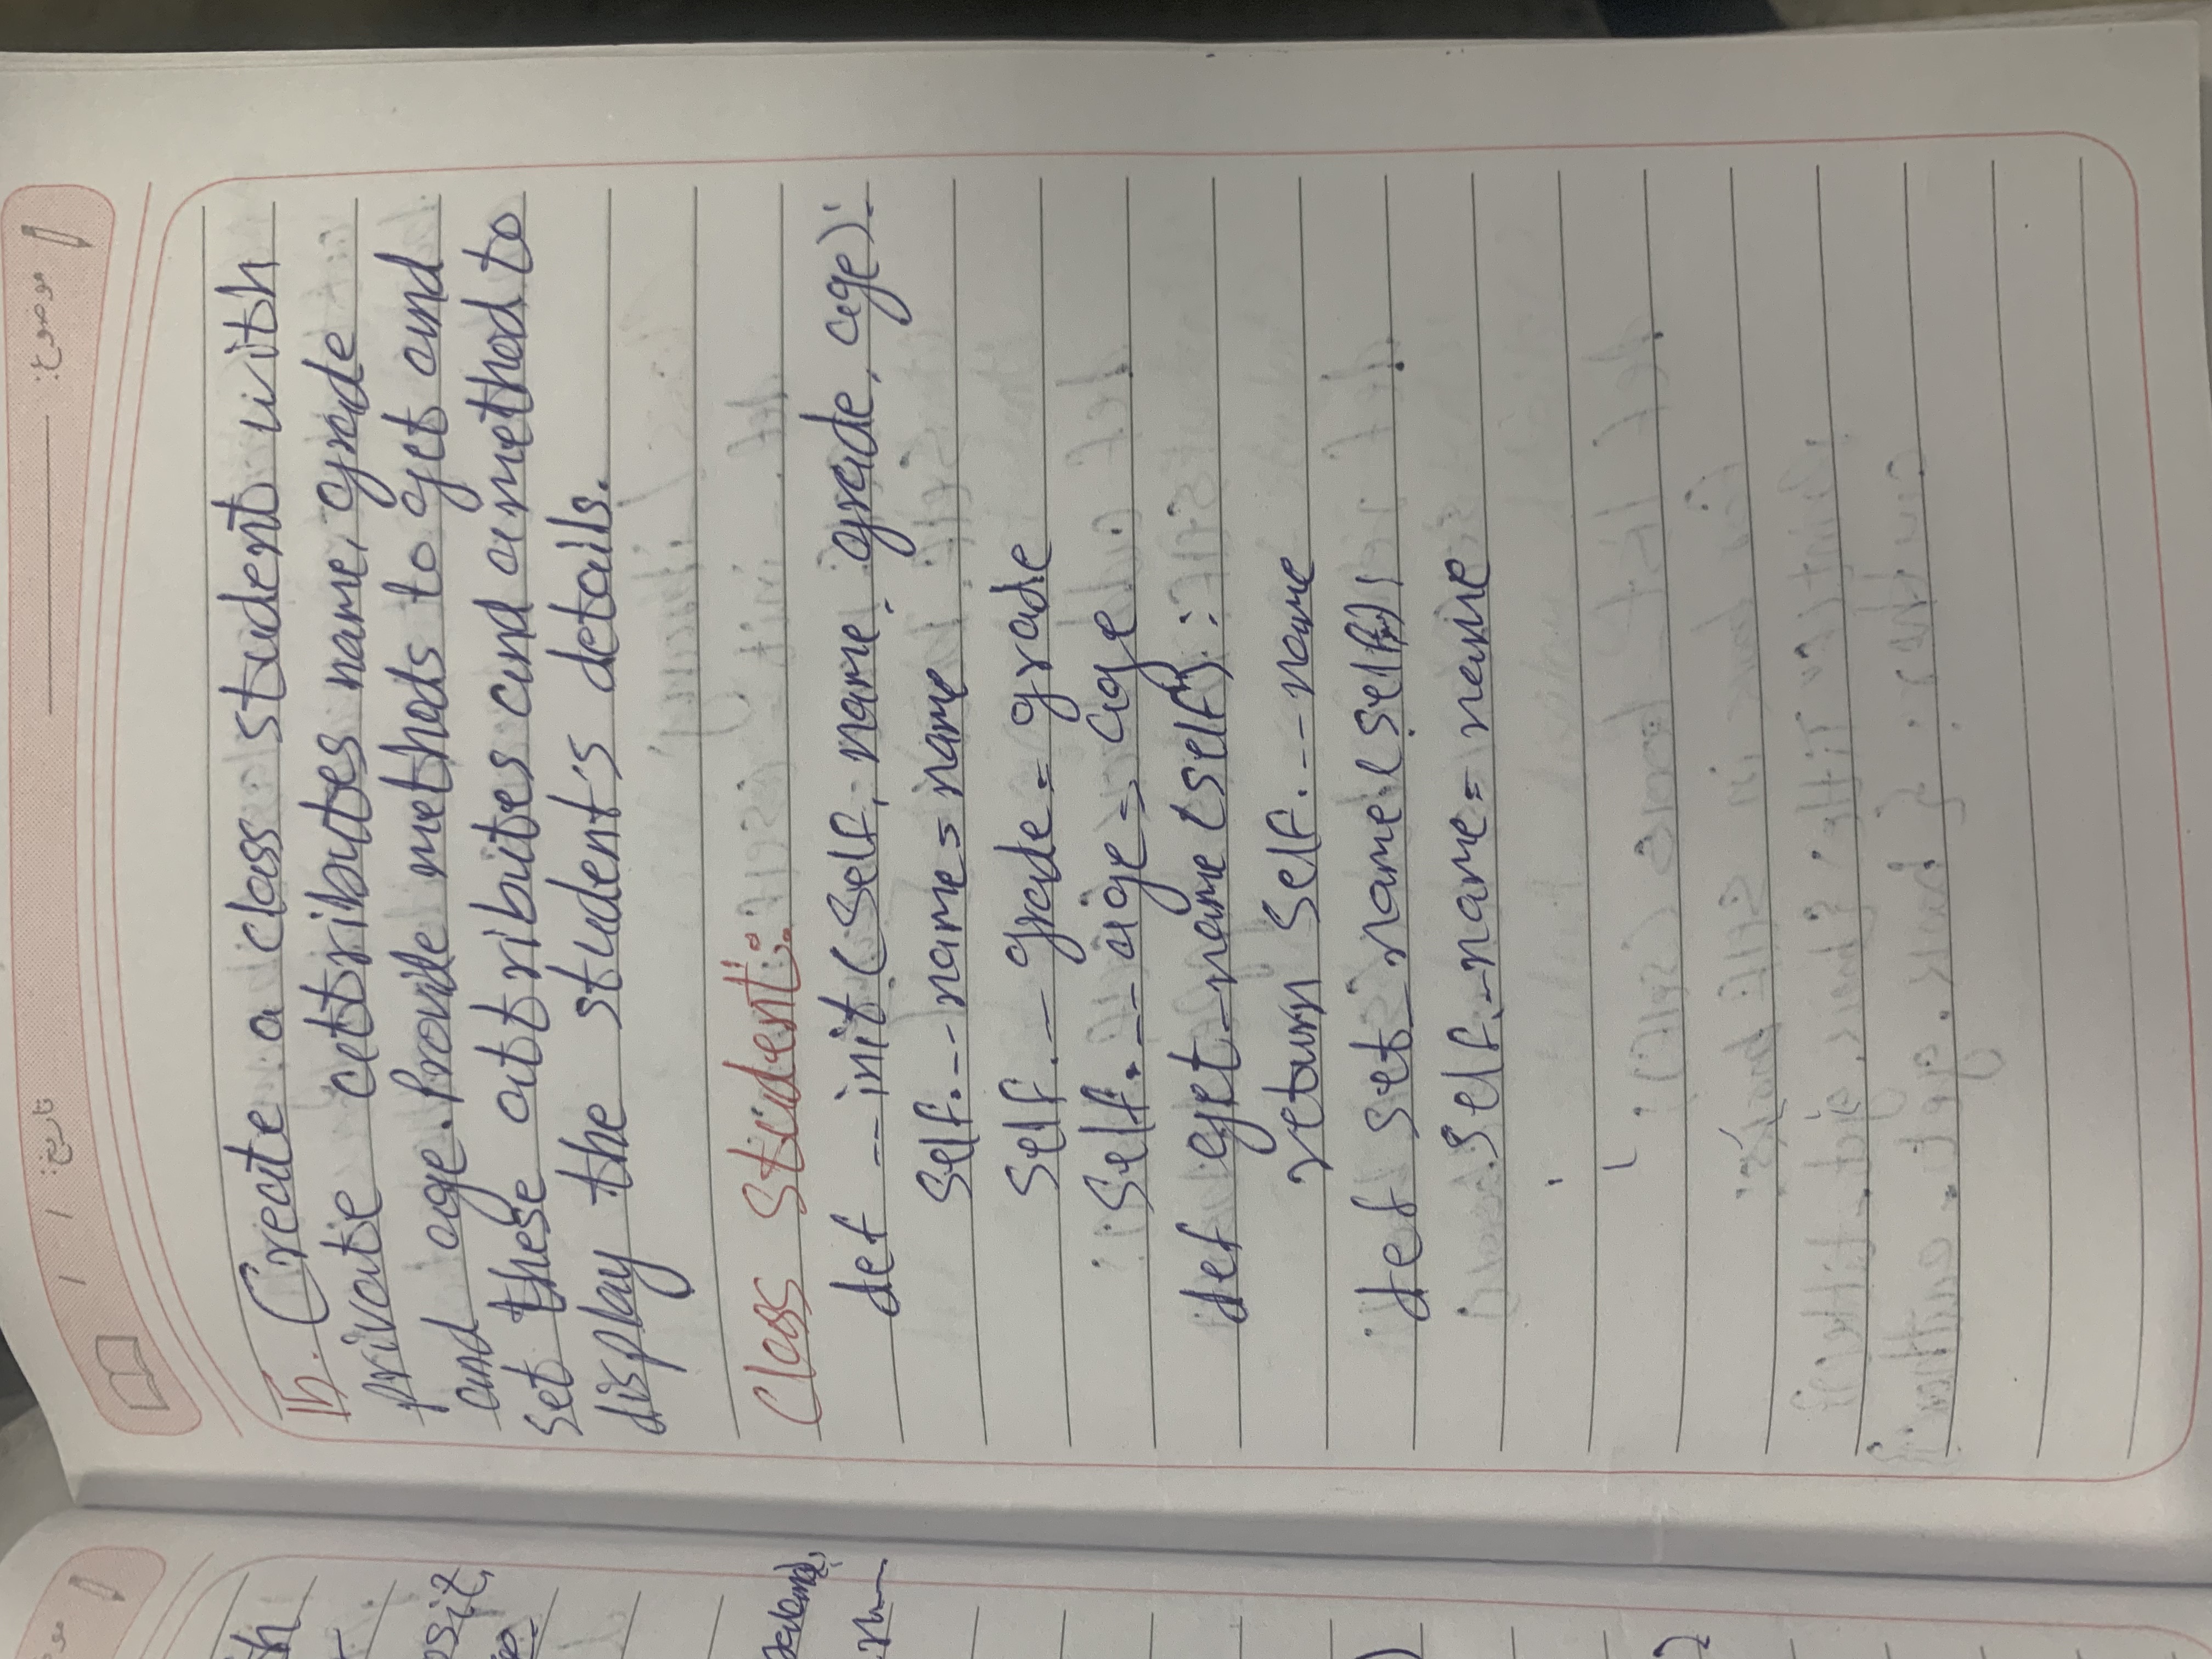 موضوع:
تاریخ: / /
15. Create a class student with
private attributes name, grade
and age. Provide methods to get and
set these attributes and a method to
display the student's details.
class student:
def __init(self, name, grade, age):
self.__name = name
self.__grade = grade
self.__age = age
def get_name(self):
return self.__name
def set_name(self):
self._name = name